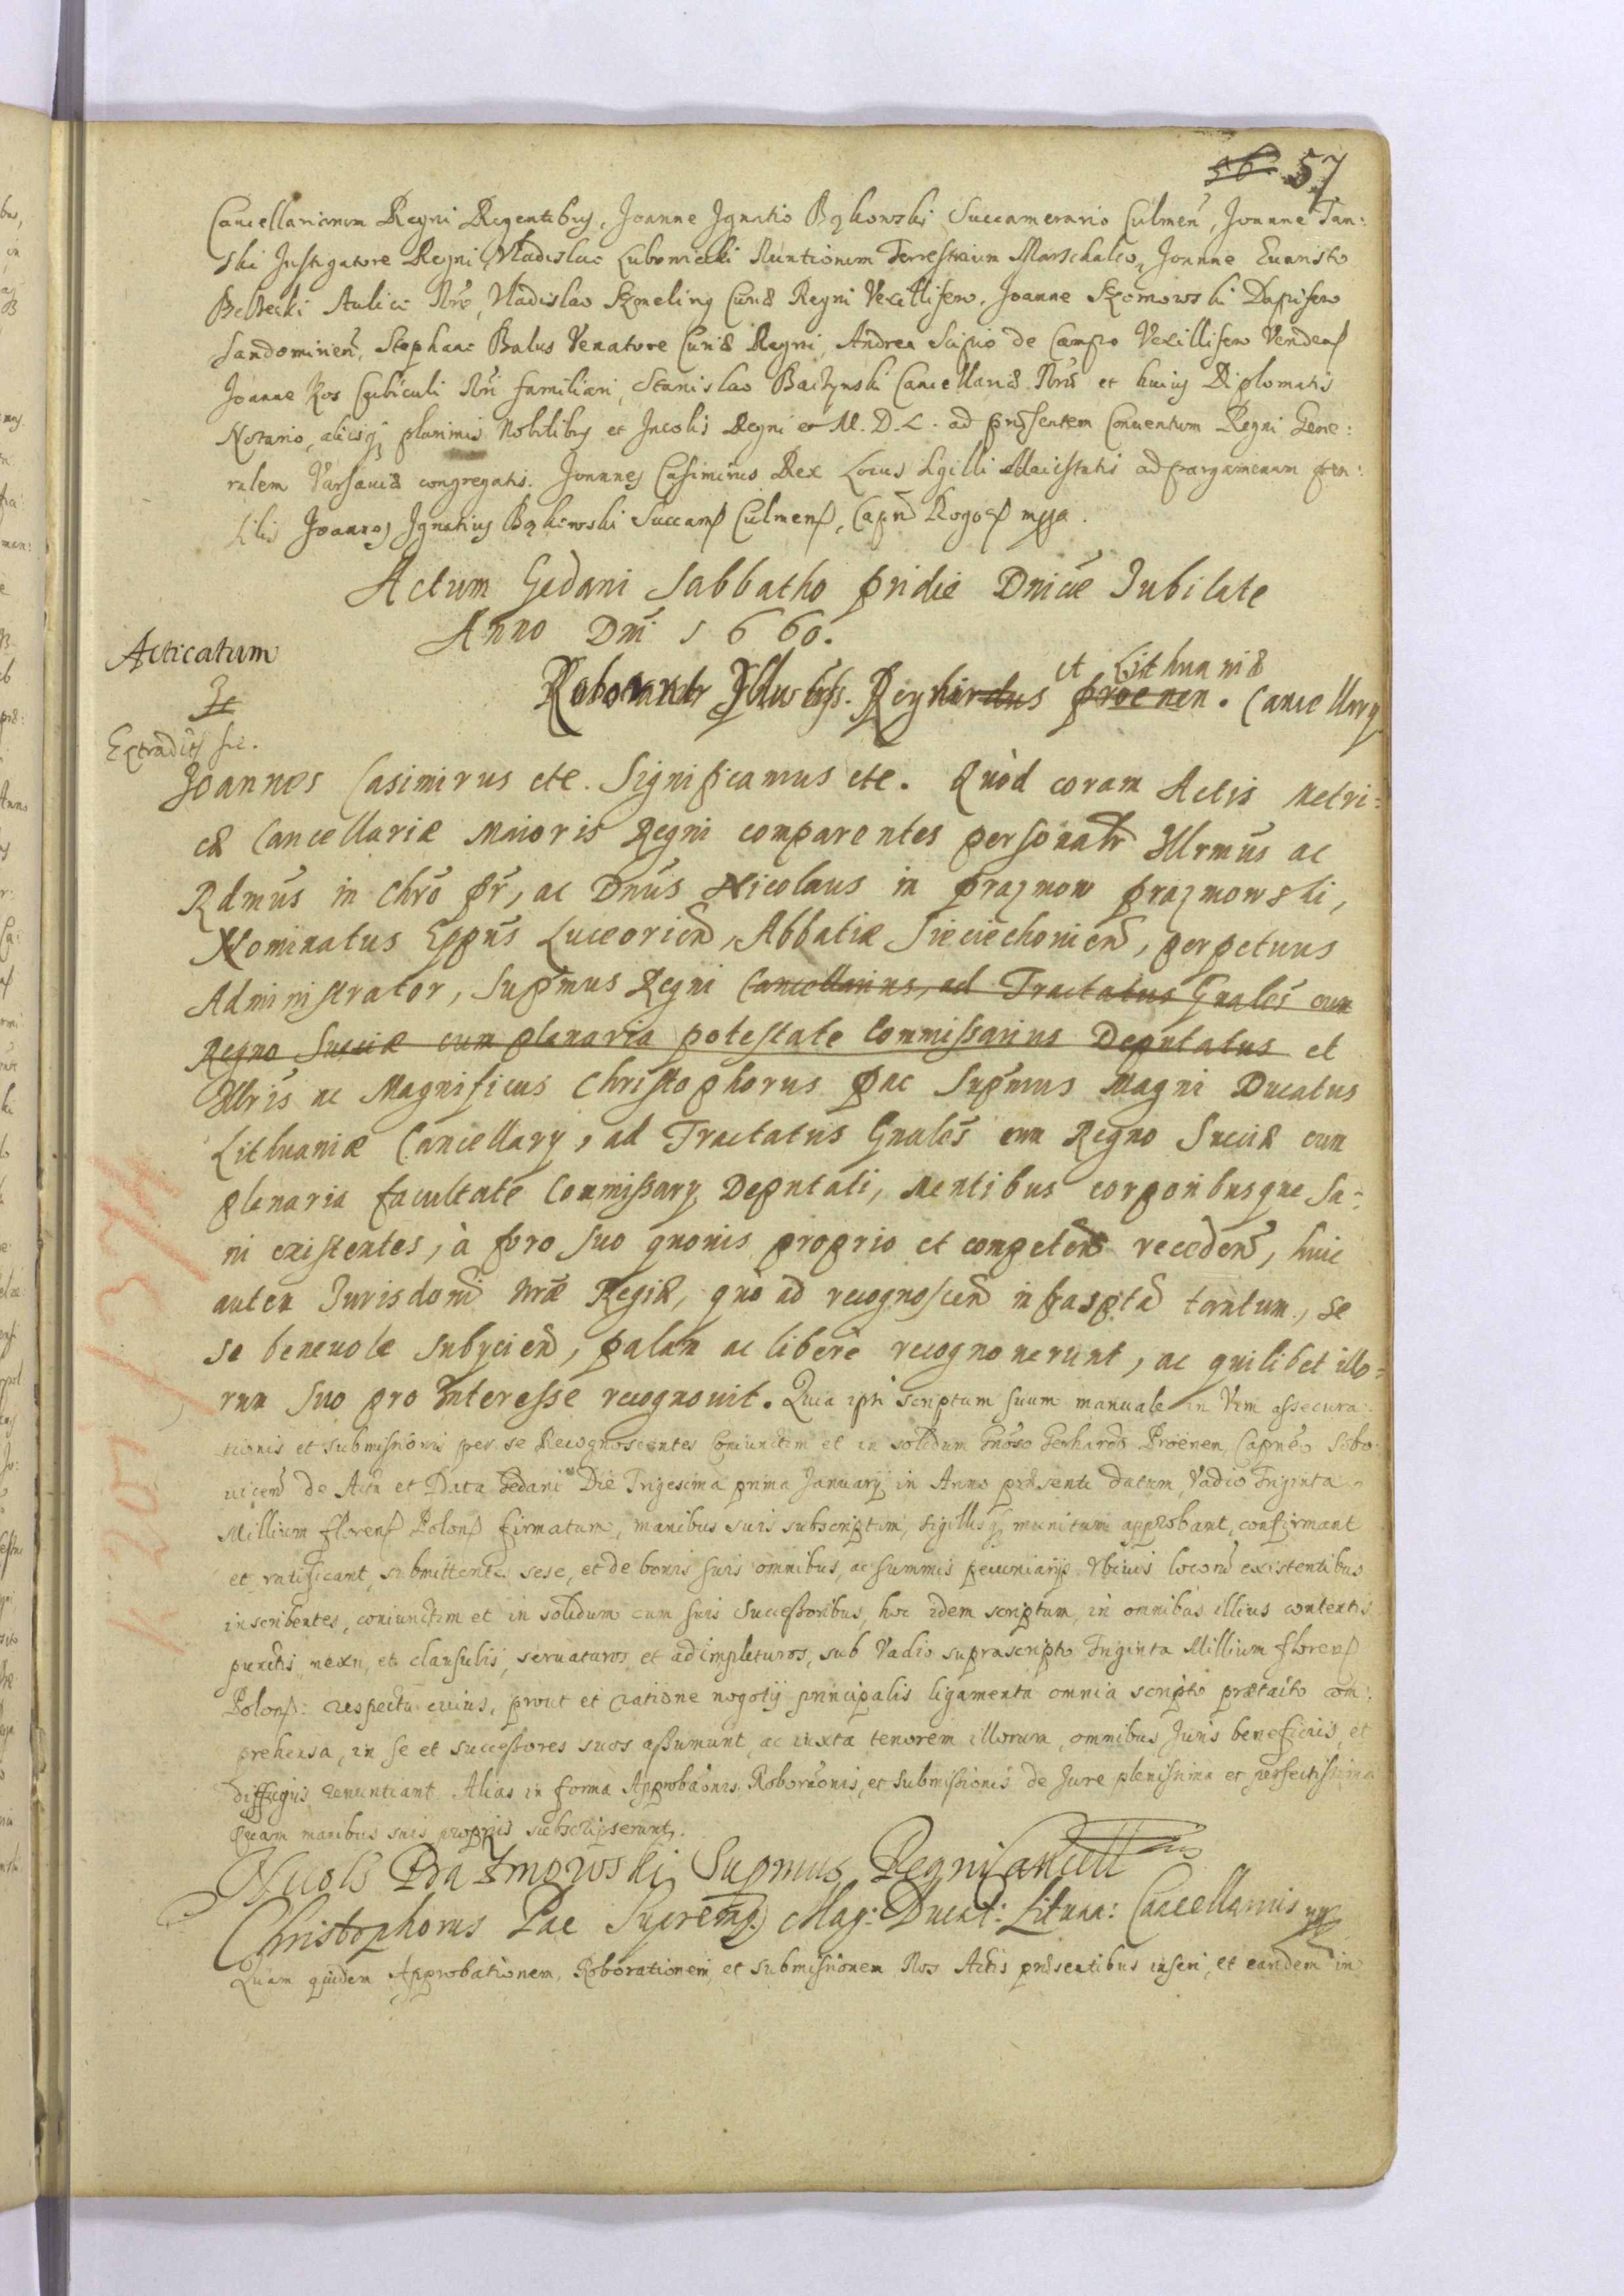 56. 57
Cancellariarum Regni Regentibus, Joanne Jgnatio Bąkowski Succamerario Culmen̄, Joanne Tan:
ski Instigatore Regni, Vladislao Lubowiecki Nuntiorum Terrestrium Marschalco, Joanne Euaristo
Bełżecki Aulico Nro, Vladislao Szmeling Curiæ Regni Vexillifero, Joanne Szomowski Dapifero
Sandomirien̄, Stephano Balus Venatore Curiæ Regni, Andrea Scipio de Campo Vexillifero Venden
Joanne Kos Cubiculi Nri familiari, Stanislao Buczynski Cancellariæ Nræ et huius Diplomatis
Notario, alijsq; plurimis Nobilibus et Jncolis Regni et M. D. L. ad præsentem Conuentum Regni Gene:
ralem Varsauiæ congregatis. Joannes Casimirus Rex Locus Sigilli Maiestatis ad pargamenam pen:
silis Joannes Jgnatius Bąkowski Succam Culmen, Capn Rogoz mpa.
Actum Gedani Sabbatho pridie Dnicæ Jubilate
Anno Dni 1660.
Acticatum
Extradit
et Lithuaniæ
Roborant Illustriss. Regni proenen. Cancellarij
Joannes Casimirus etc. Significamus etc. Quòd coram Actis Metri:
cæ Cancellariæ Maioris Regni comparentes personalr Illrmus ac
Rdmus in Chro Pr, ac Dnus Nicolaus in Prazmow Prazmowski,
Nominatus Eppus Luceorien, Abbatiæ Sieciechouien, perpetuus
Administrator, Supmus Regni Cancellarius, ad Tractatus Gnales cum
Regno Sueciæ cum plenaria potestate Commissarius Deputatus et
Illris ac Magnificus Christophorus Pac Supmus Magni Ducatus
Lithuaniæ Cancellarij, ad Tractatus Gnales cum Regno Sueciæ cum
plenaria facultate Commissarij Deputati, Mentibus corporibusque Sa:
ni existentes, à foro suo quouis proprio et competen recedén, huic
autem Jurisdoni nræ Regiæ, quo ad recognoscen infraspta tantum, se
se beneuole subijcien, palam ac libere recognouerunt, ac quilibet illo:
rum suo pro Interesse recognouit. Quia ipsi scriptum suum manuale in Vim assecura:
tionis et submissionis per se Recognoscentes Coniunctim et in solidum Gnoso Gerhardo Proenen, Capneo Sobo:
uicen de Actu et Data Gedani Die Trigesima prima January in Anno præsenti datum, Vadio Triginta
Millium floren Polon firmatum, manibus suis subscriptum, sigillisq; munitum approbant, confirmant
et ratificant, submittentes sese, et de bonis suis omnibus, ac summis pecuniarijs Vbiuis locorum existentibus
inscribentes, coniunctim et in solidum cum suis Successoribus, hoc idem scriptum, in omnibus illius contentis
punctis, nexu, et clausulis, seruaturos et adimpleturos, sub Vadio suprascripto Triginta Millium floren
Polon: respectu cuius, prout et ratione nogotij principalis ligamenta omnia scripto prætacto com:
prehensa, in se et successores suos assumunt, ac iuxta tenorem illorum, omnibus Juris beneficiis, et
diffugijs renuntiant. Alias in forma Approbaonis, Roboraonis, et Submissionis de Jure plenissima et perfectissima
Quam manibus suis proprijs subscripserunt.
Nicols Prazmowski Supmus Regni Cancell
Christophorus Pac Supremq Mag: Ducat: Lituan: Cancellarius mp
Quam quidem Approbationem, Roborationem, et Submissionem Nos Actis præsentibus inseri, et eandem in